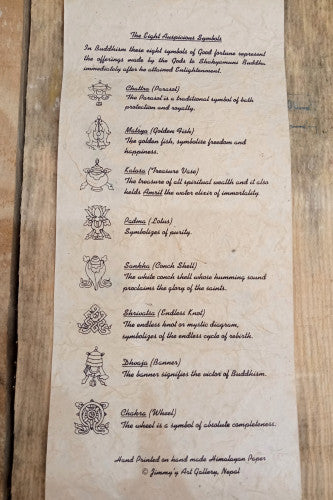 The Eight Auspicious Symbols
In Buddhism these eight symbols of Good fortune represent
the offerings made by the Gods to Shakyamuni Buddha
immediately after he attained Enlightenment.
Chattra (Parasol)
The Parasol is a traditional symbol of both
protection and royalty.
Matsya (Golden Fish)
The golden fish, symbolize freedom and
happiness.
Kalasa (Treasure Vase)
The treasure of all spiritual wealth and it also
holds Amrit the water elixir of immortality.
Padma (Lotus)
Symbolizes of purity.
Sankha (Conch Shell)
The white conch shell whose humming sound
proclaims the glory of the saints.
Shrivatsa (Endless Knot)
The endless knot or mystic diagram,
symbolizes of the endless cycle of rebirth.
Dhvaja (Banner)
The banner signifies the victor of Buddhism.
Chakra (Wheel)
The wheel is a symbol of absolute completeness.
Hand Printed on hand made Himalayan Paper
© Jimmy'y Art Gallery, Nepal